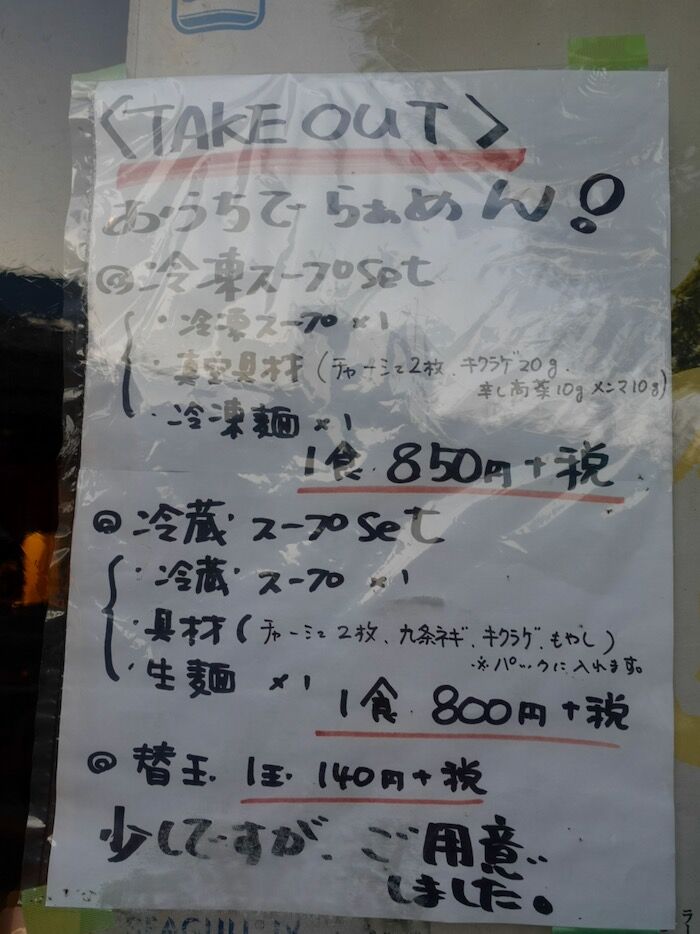 〈TAKE OUT〉
おうちで らぁめん!
◎冷凍スープSet
・冷凍スープ×1
・真空具材(チャーシュー2枚、キクラゲ20g、
辛し高菜10g メンマ10g)
・冷凍麺 ×1
1食 850円+税
◎冷蔵スープSet
・冷蔵スープ ×1
・具材(チャーシュー2枚、九条ネギ、キクラゲ、もやし)
※パックに入れます。
・生麺 ×1
1食 800円+税
◎替玉 1玉 140円+税
少しですが、ご用意
しました。